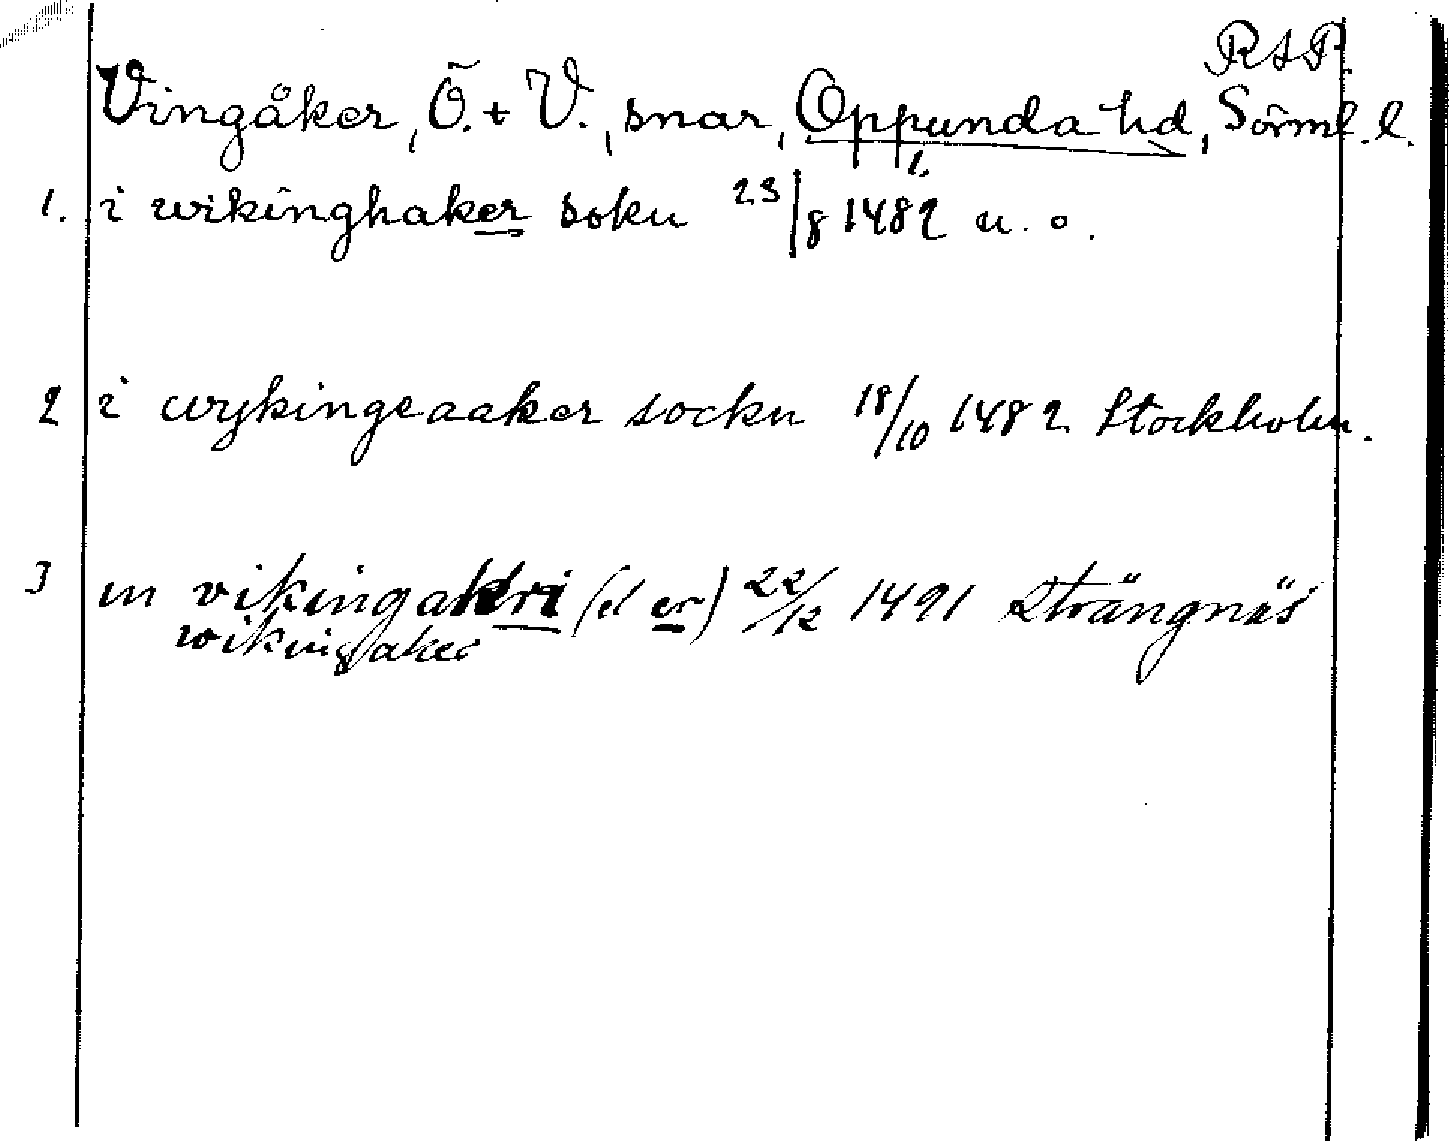 RAP.
Vingåker, Ö. + V., snar, Oppunda hd, Sörml. l.
1.
1. i wikinghaker sokn 23/8 1482 u. o.
2 i wykingeaaker sockn 18/10 1482 Stockholm.
3 in vikingakri (el er) 22/12 1491 Strängnäs
wikingaker